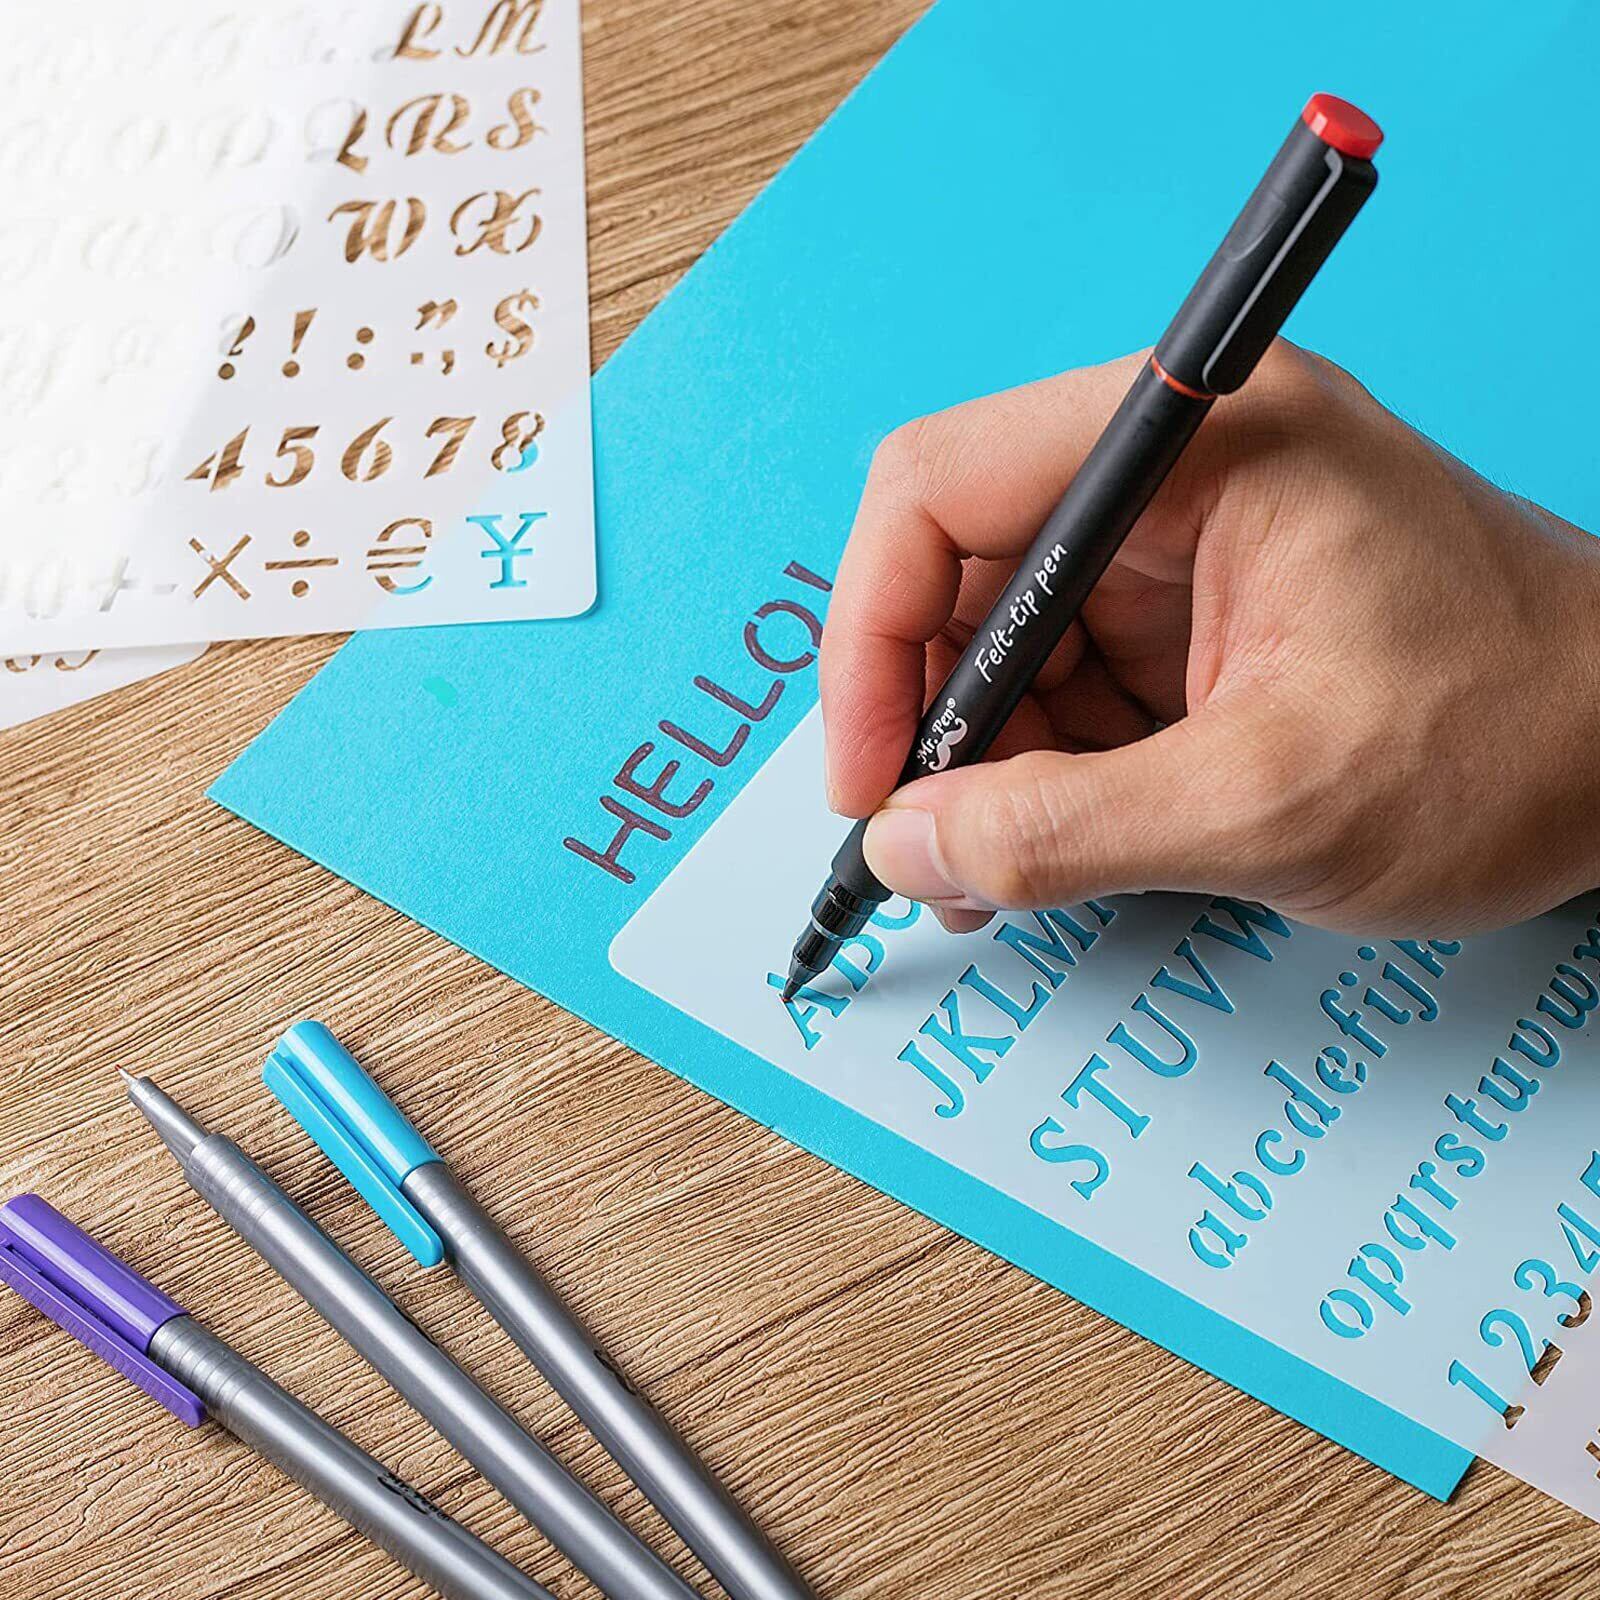 L M
Q R S
W X
? ! : " ; $
4 5 6 7 8
0 + - × ÷ € ¥
HELLO!
Mr. Pen® Felt-tip pen
ABC
JKLM
STUVW
abcdefijk
opqrstuvwx
12345